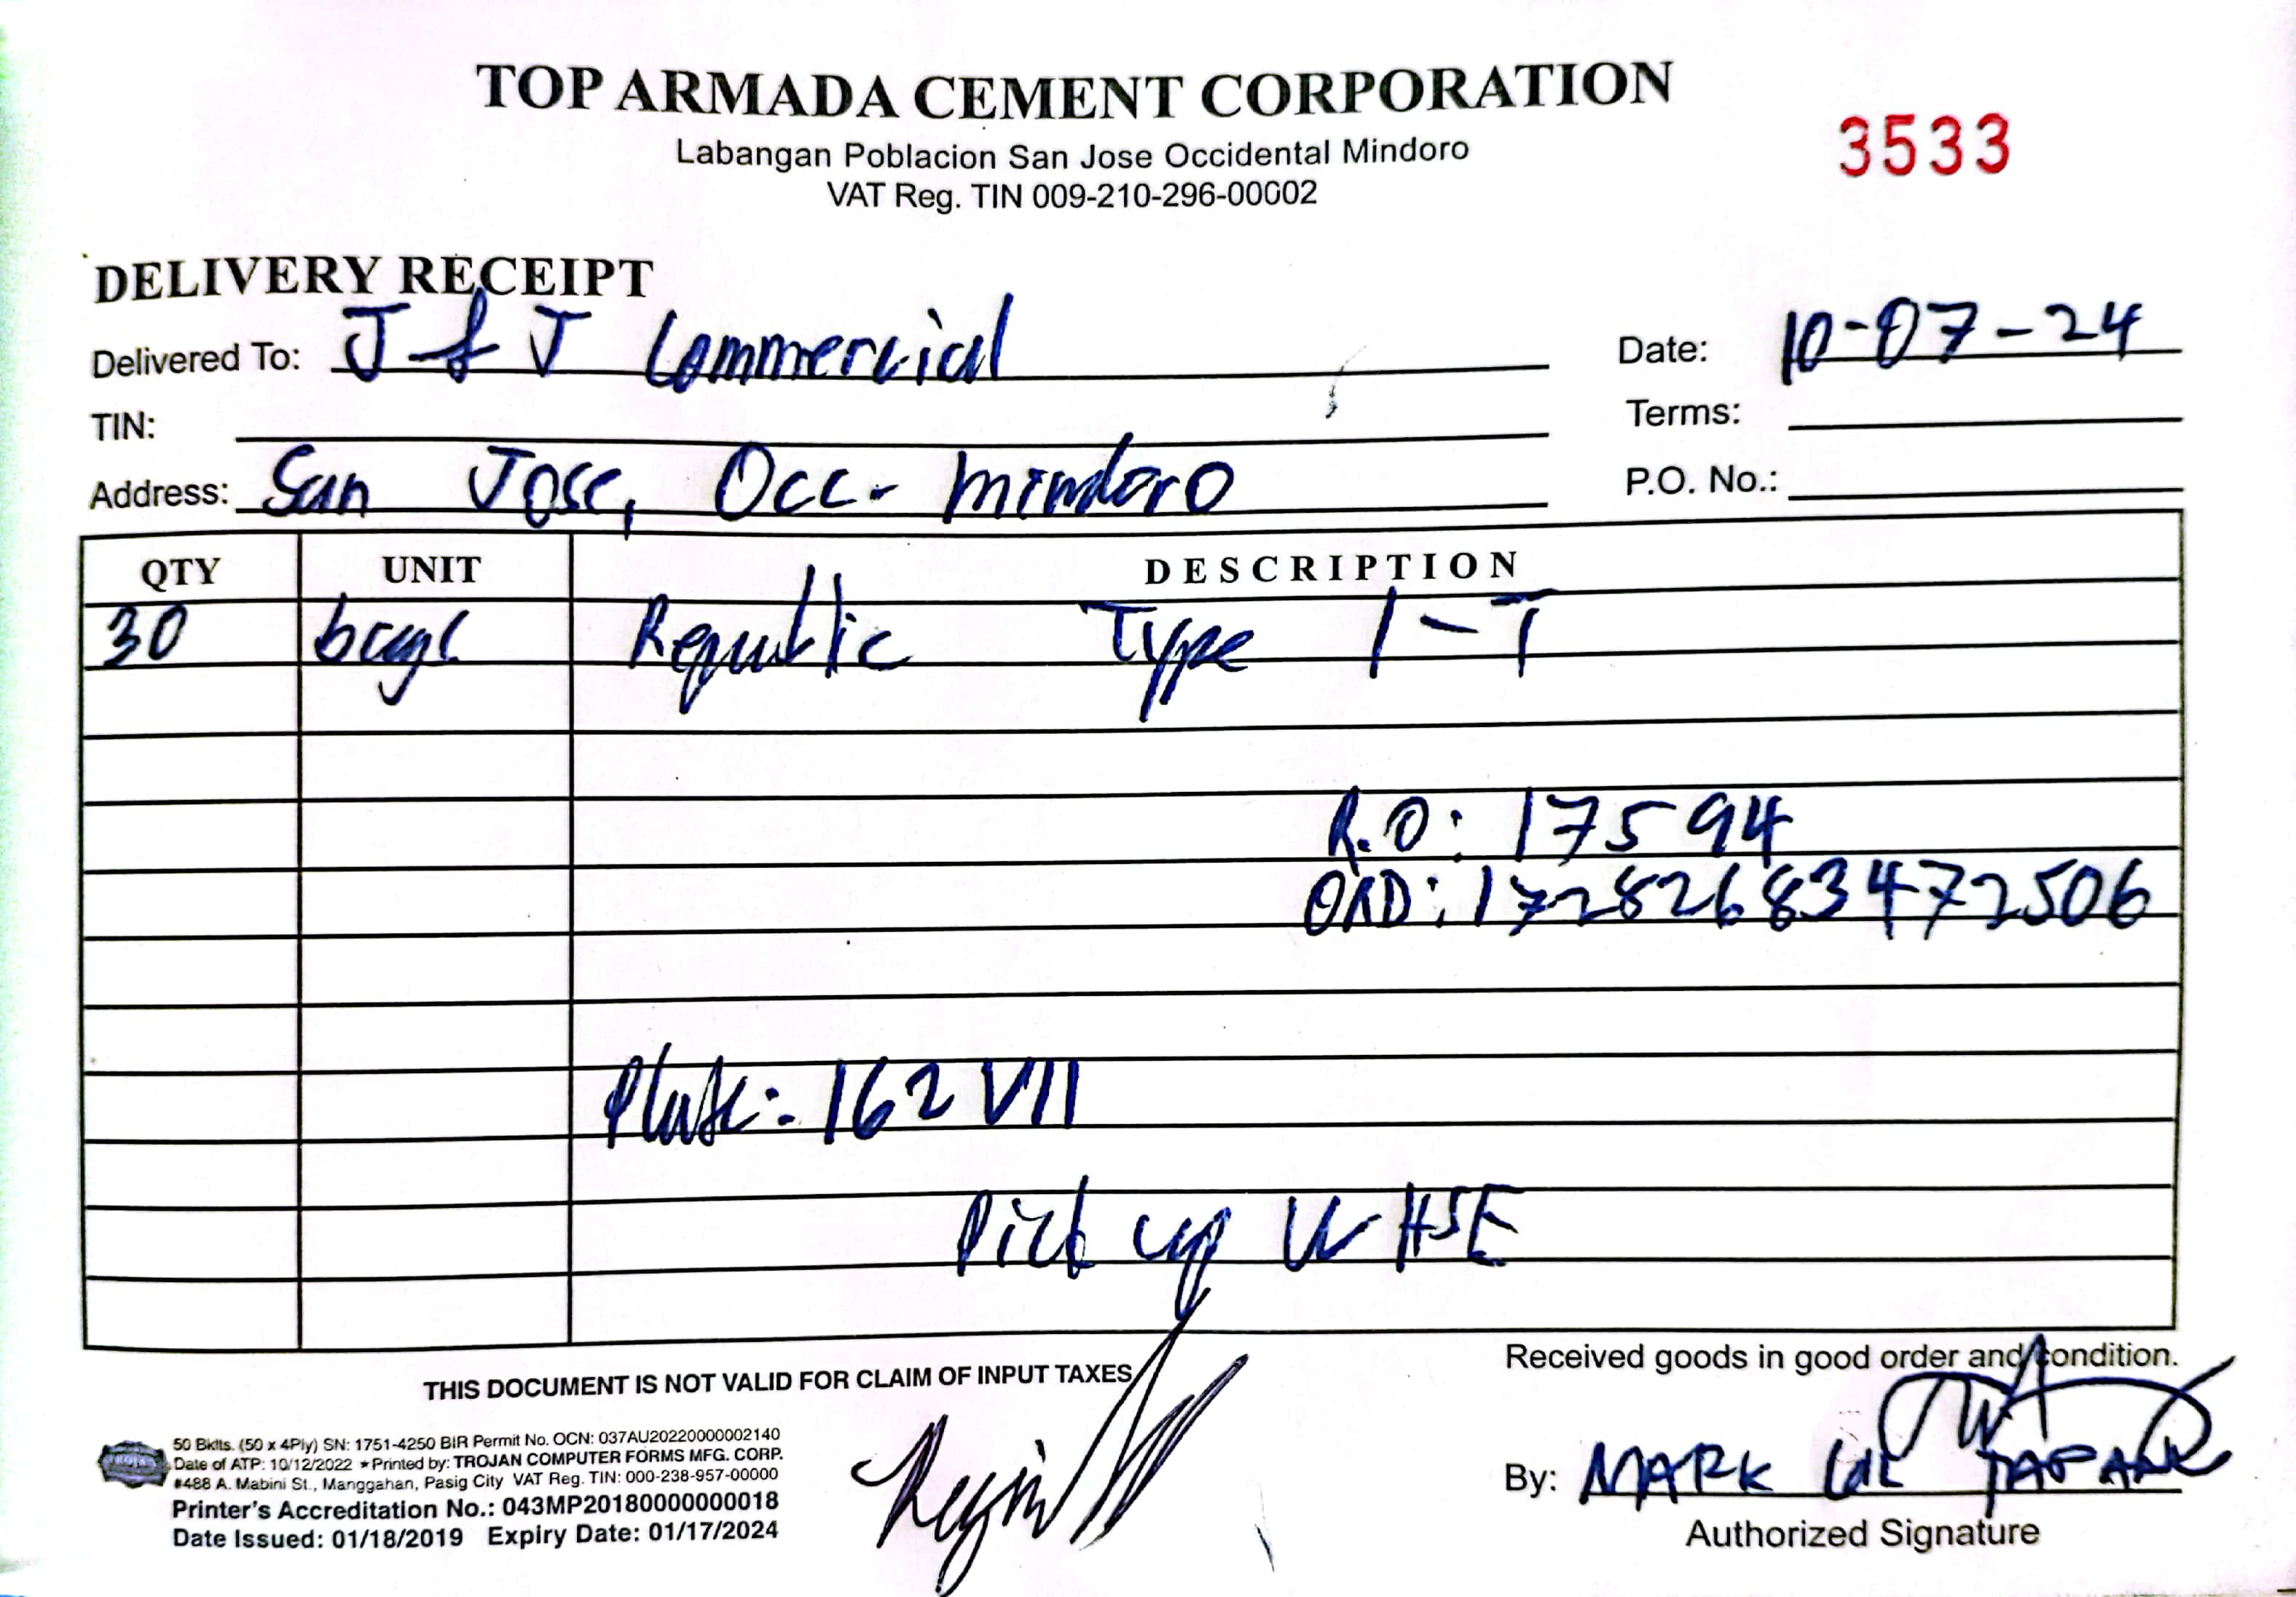 TOP ARMADA CEMENT CORPORATION
Labangan Poblacion San Jose Occidental Mindoro
3533
VAT Reg. TIN 009-210-296-00002
DELIVERY RECEIPT
Delivered To: J & J Commercial
Date: 10-07-24
TIN:
Terms:
Address: San Jose, Occ. Mindoro
P.O. No.:
QTY UNIT DESCRIPTION
30 bags Republic Type 1-T
R.O: 17594
ORD: 17282683472506
Plate: 162 VII
Pick up WHSE
Received goods in good order and condition.
THIS DOCUMENT IS NOT VALID FOR CLAIM OF INPUT TAXES
50 Bklts. (50 x 4Ply) SN: 1751-4250 BIR Permit No. OCN: 037AU20220000002140
Date of ATP: 10/12/2022 ★ Printed by: TROJAN COMPUTER FORMS MFG. CORP.
#488 A. Mabini St., Manggahan, Pasig City VAT Reg. TIN: 000-238-957-00000
Printer's Accreditation No.: 043MP20180000000018
Date Issued: 01/18/2019 Expiry Date: 01/17/2024
By: MARK
Authorized Signature